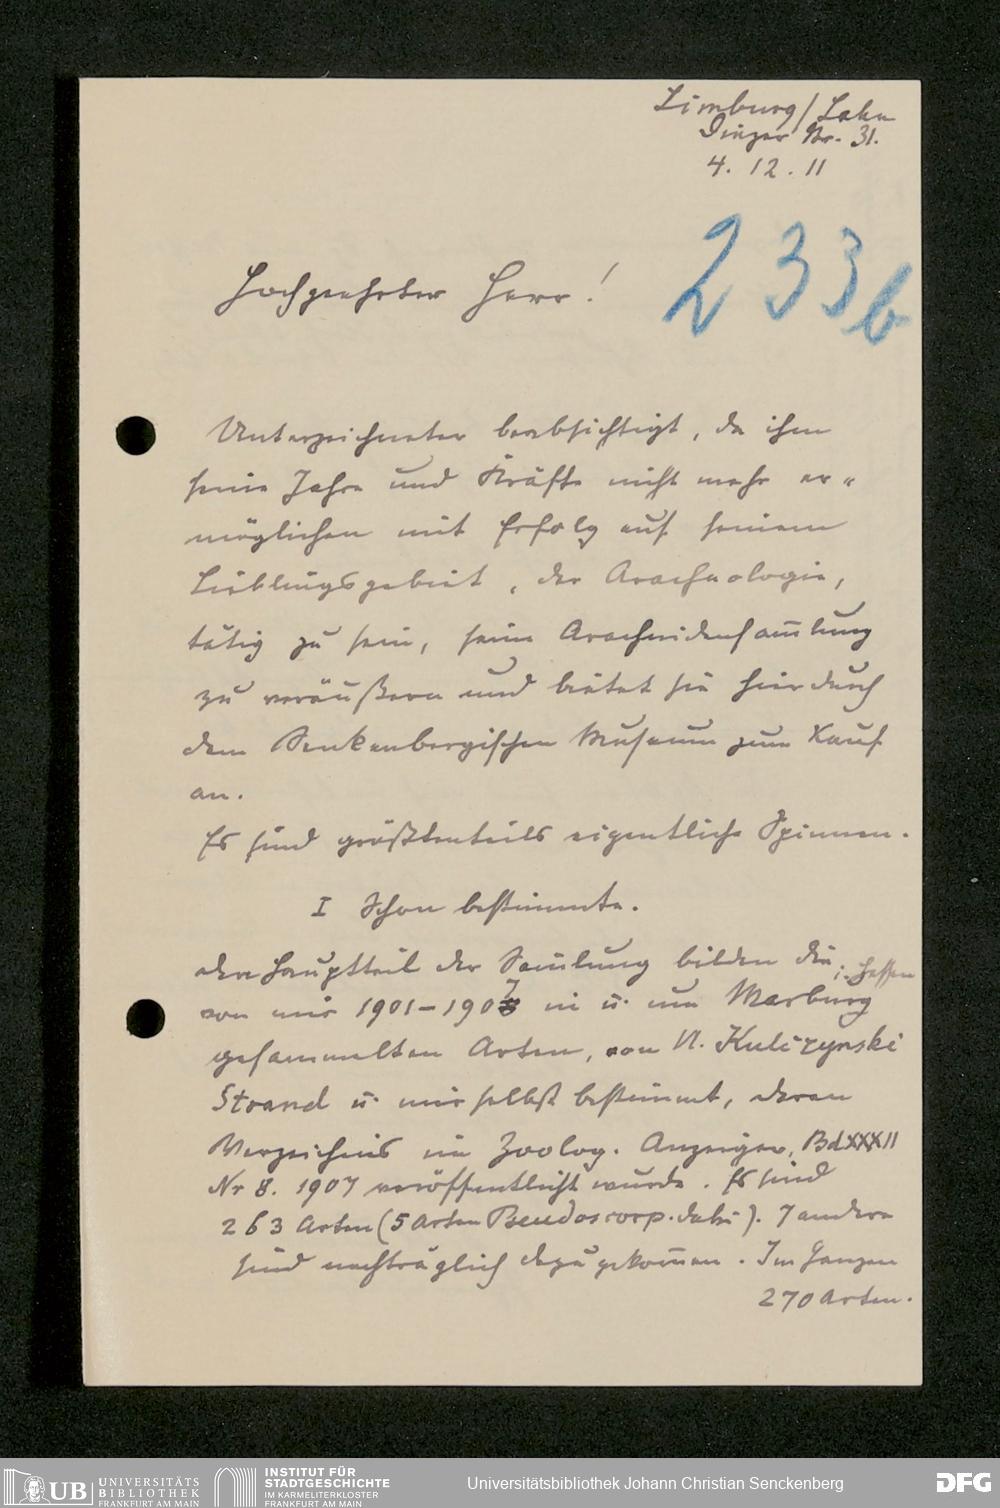 Limburg / Lahn
Diezer Str. 31.
4. 12. 11
233b
Hochgeehrter Herr!
Unterzeichneter beabsichtigt, da ihm
seine Jahre und Kräfte nicht mehr er-
möglichen mit Erfolg auf seinem
Lieblingsgebiet, der Arachnologie,
tätig zu sein, seine Arachnidensam̄lung
zu veräußern und bietet sie hierdurch
dem Senkenbergischen Museum zum Kauf
an.
Es sind größtenteils eigentliche Spinnen.
I Schon bestimmte.
den Hauptteil der Sam̄lung bilden die
von mir 1901–1907 in u. um Marburg i. Hessen
gesammelten Arten, von Vl. Kulczynski
Strand u. mir selbst bestimmt, deren
Verzeichnis im Zoolog. Anzeiger, Bd XXXII
Nr 8. 1907 veröffentlicht wurde. Es sind
263 Arten (5 Arten Pseudoscorp. dabei). 7 andere
sind nachträglich dazu gekom̄en. Im Ganzen
270 Arten.
UB UNIVERSITÄTS
BIBLIOTHEK
FRANKFURT AM MAIN
INSTITUT FÜR
STADTGESCHICHTE
IM KARMELITERKLOSTER
FRANKFURT AM MAIN
Universitätsbibliothek Johann Christian Senckenberg
DFG